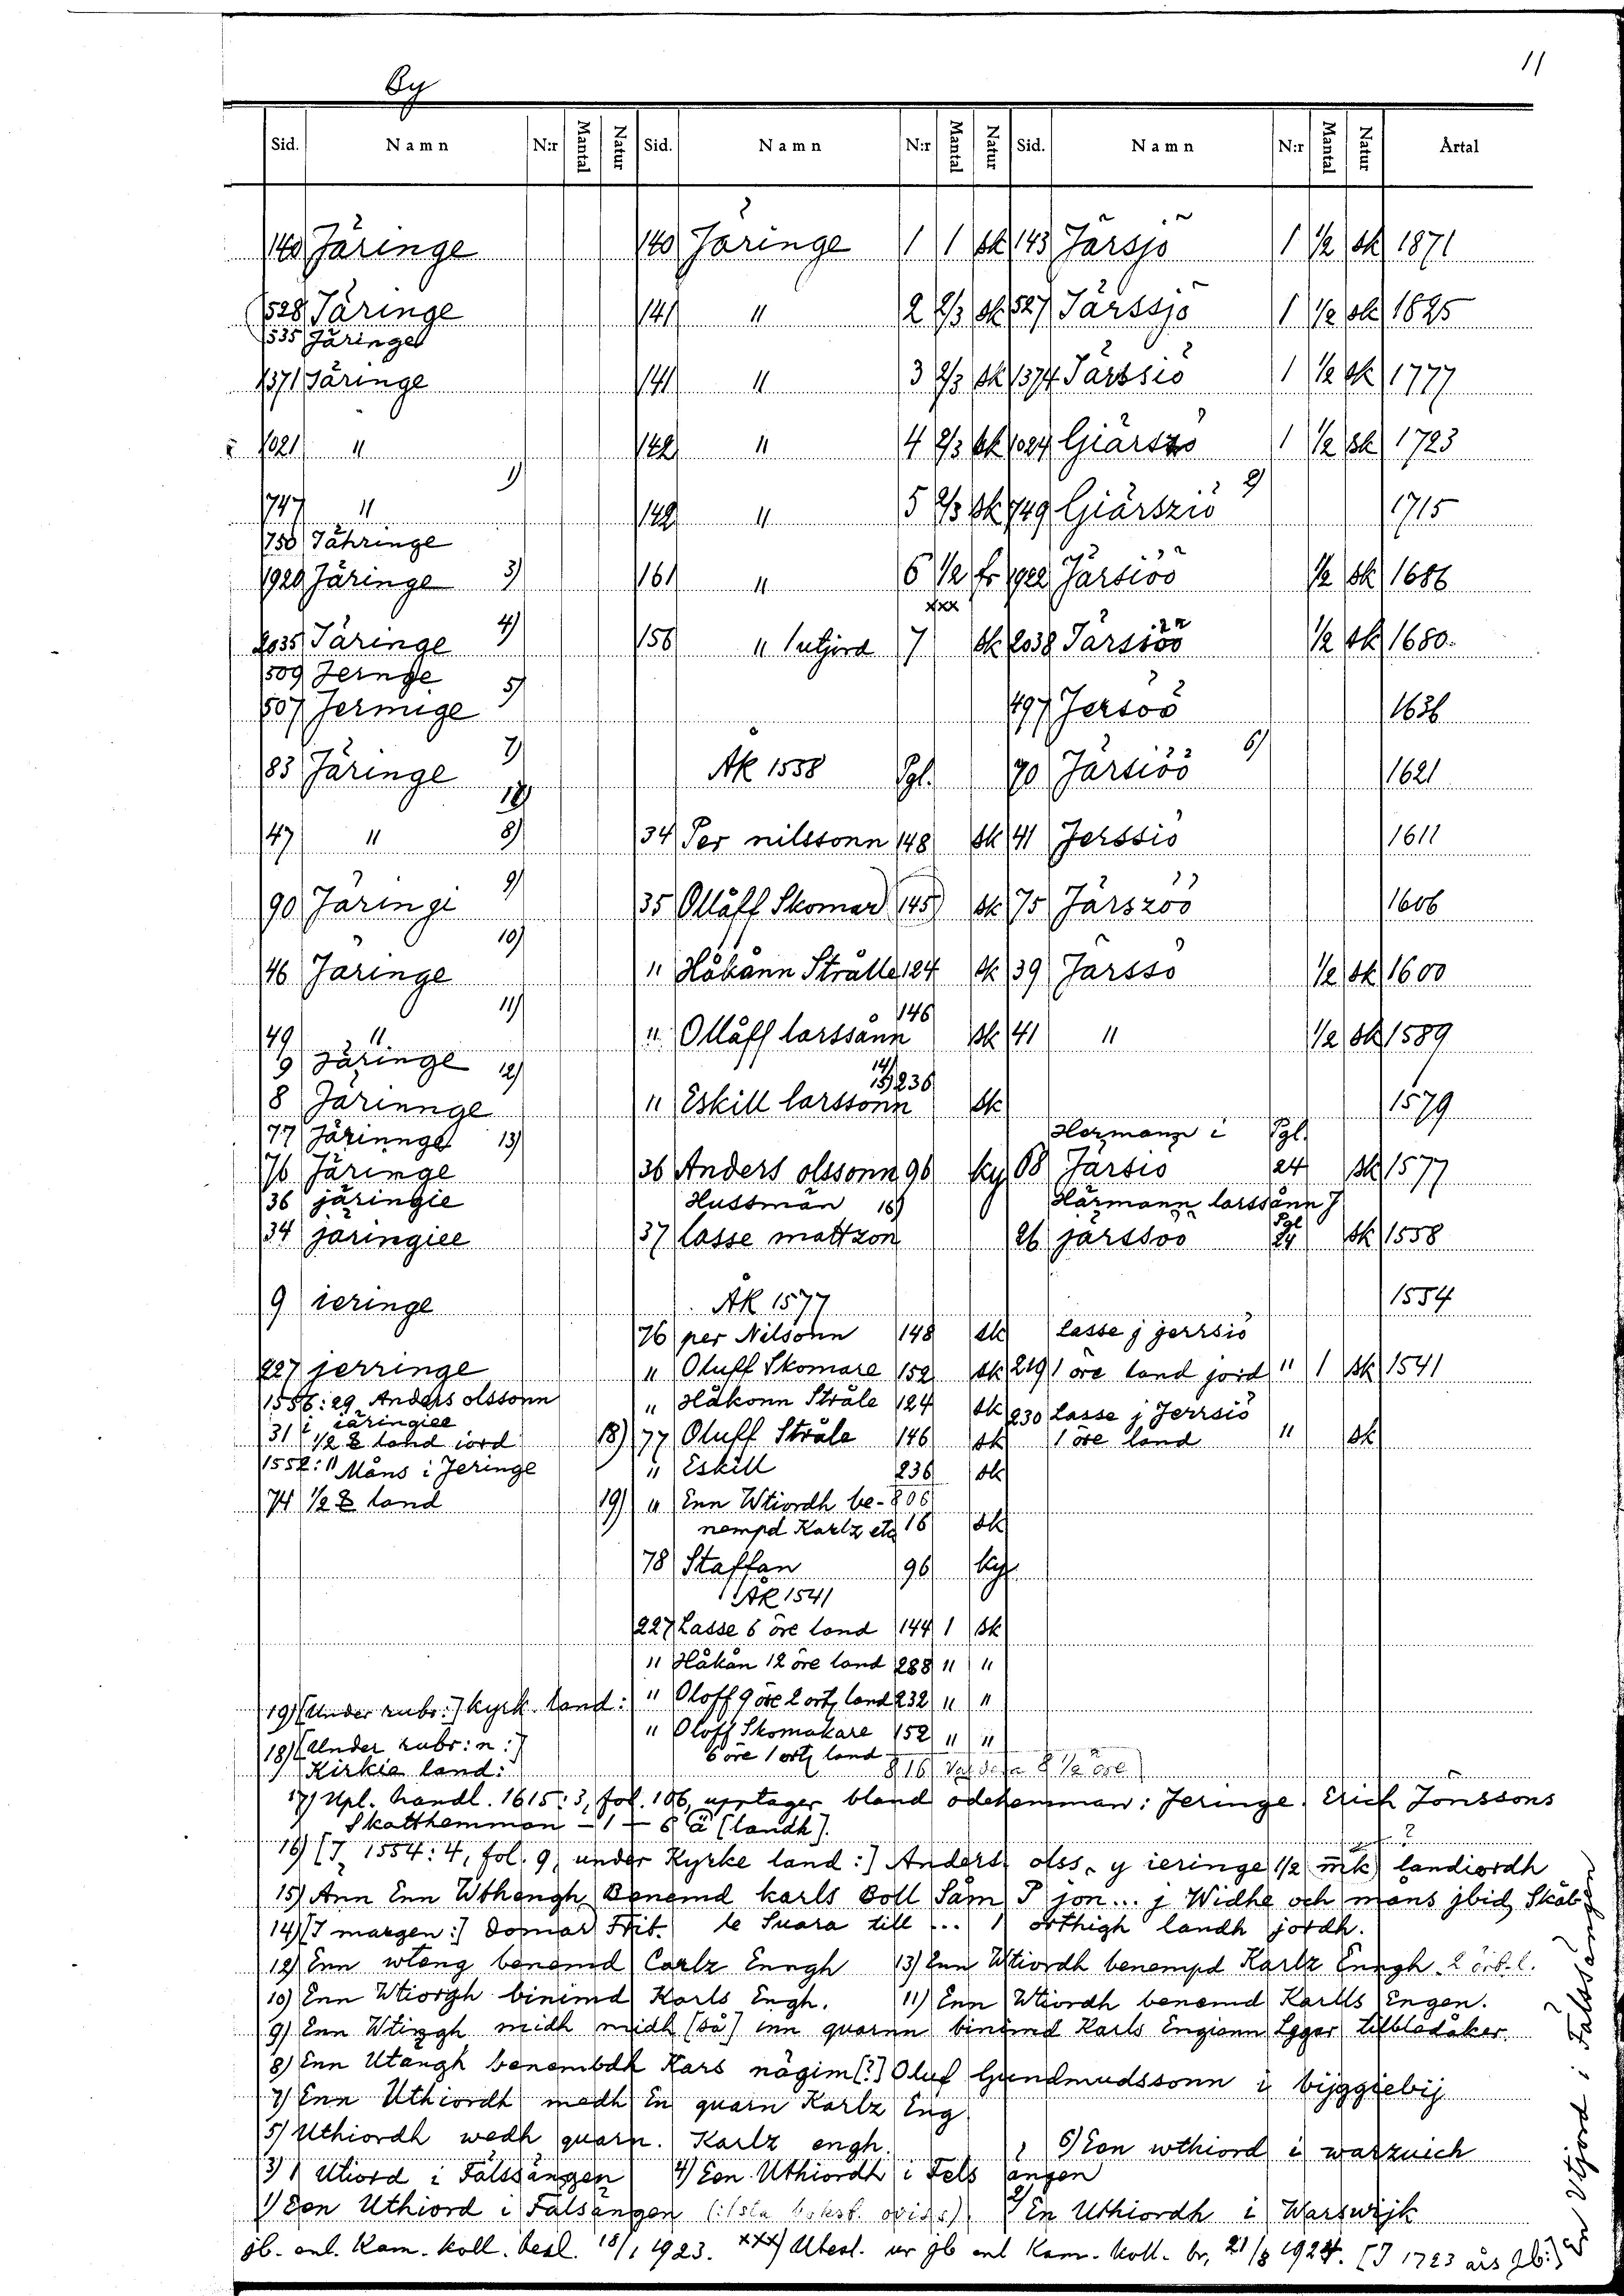 11
By
Sid. Namn N:r Mantal Natur Sid. Namn N:r Mantal Natur Sid. Namn N:r Mantal Natur Årtal
140 Järinge 140 Järinge 1 1 sk 143 Järsjö 1 1/2 sk 1871
528 Järinge 141 " 2 2/3 sk 527 Järssjö 1 1/2 sk 1825
535 Järinge
1371 Järinge 141 " 3 2/3 sk 1374 Järssiö 1 1/2 sk 1777
1021 " 142 " 4 2/3 sk 1024 Giärszö 1 1/2 sk 1723
747 " 1) 142 " 5 2/3 sk 749 Giärsziö 2) 1715
750 Jähringe
1920 Järinge 3) 161 " 6 1/2 fr 1922 Järsiöö 1/2 sk 1686
xxx
2035 Järinge 4) 158 " 1 utjord 7 sk 2038 Järsiöö 1/2 sk 1680
509 Jernge
507 Jermige 5) 497 Jersöö 1636
83 Järinge 7) ÅK 1558 Pgl. 70 Järsiöö 6) 1621
47 " 8) 34 Per nilssonn 148 sk 41 Jerssiö 1611
90 Järingi 9) 35 Ollåff Skomar 145 sk 75 Järszöö 1606
46 Järinge 10) " Håkånn Strålle 124 sk 39 Jårssö 1/2 sk 1600
49 " 11) " Ollåff larssånn 146 sk 41 " 1/2 sk 1589
9 Järinge
8 Järinnge 12) " Eskill larssonn 14) 15) 236 sk 1579
77 Järinnge 13) Hermann i Pgl.
76 Järinge 36 Anders olssonn 96 ky 68 Järsiö 24 sk 1577
36 järingie Hussmän 16) Härmann larssånn j
34 järingiee 37 lasse mattzon 26 järssöö Pgl 24 sk 1558
9 ieringe ÅK 1577 1554
76 per Nilsonn 148 sk Lasse j jerrsiö
227 jerringe " Oluff Skomare 152 sk 219 1 öre land jord " 1 sk 1541
1556: 29 Anders olssonn " Håkonn Stråle 124 sk 230 Lasse j Jerrsiö
31 i iäringiee
1/2 land iord 18) 77 Oluff Stråle 146 sk 1 öre land " sk
1552: 11 Måns i Jeringe " Eskill 236 sk
74 1/2 land 19) " Enn Wtiordh be- 206
nempd Karlz etc 16 sk
78 Staffan 96 ky
ÅK 1541
227 Lasse 6 öre land 144 1 sk
" Håkån 12 öre land 288 " "
19) [Under rubr:] kyrk. land: " Oloff 9 öre 2 ort land 232 " "
" Oloff Skomakare 152 " "
18) [Under rubr:n:] 6 öre 1 ort land
Kirkie land:
17) Upl. handl. 1615:3, fol. 106, upptager bland ödehemman: Jeringe. Erich Jonssons
Skatthemman – 1 – [landh].
16) [I 1554:4, fol. 9, under Kyrke land:] Anders olss. y ieringe 1/2 mk landiordh
15) Ann Enn Wthengh Benemd karls Boll Såm P jon... j Widhe och måns jbid Skäb
14) [I margen:] Domar Frit. le Suara till ... 1 örthigh landh jordh.
12) Enn wteng benemd Carlz Enngh 13) Enn Wtiordh benempd Karlz Enngh 2 örb.l.
10) Enn Wtiorgh binimd Karls Engh. 11) Enn Wtiordh benemd Karlls Engen.
9) Enn Wtingh midh midh [så] inn quarnn binimd Karls Engionn Lgger tilbladåker
8) Enn Utangh benembdh Kars någim [?] Oluf Gundmudssonn i bijggiebij
7) Enn Uthiordh medh En quarn Karlz Eng
5) Uthiordh wedh quarn. Karlz engh. 6) Een wthiord i warzuich
3) 1 Utiord i Fälssängen 4) Een Uthiordh i Fels ängen
1) Een Uthiord i Falsängen 2) En Uthiordh i Warswijk
jb. enl. Kam. koll. besl. 18/1 1923. xxx) Utesl. ur jb enl Kam. Koll. br. 21/8 1924. [I 1723 års Jb:]
En Utjord i Fålssängen